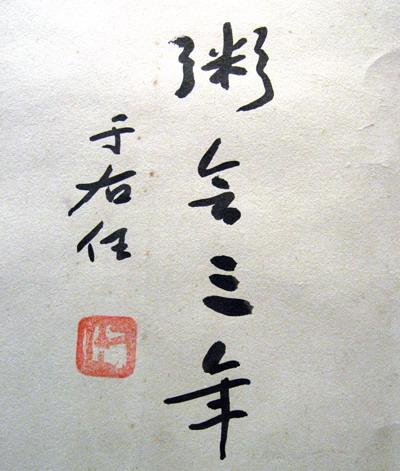 粥会三年
于右任